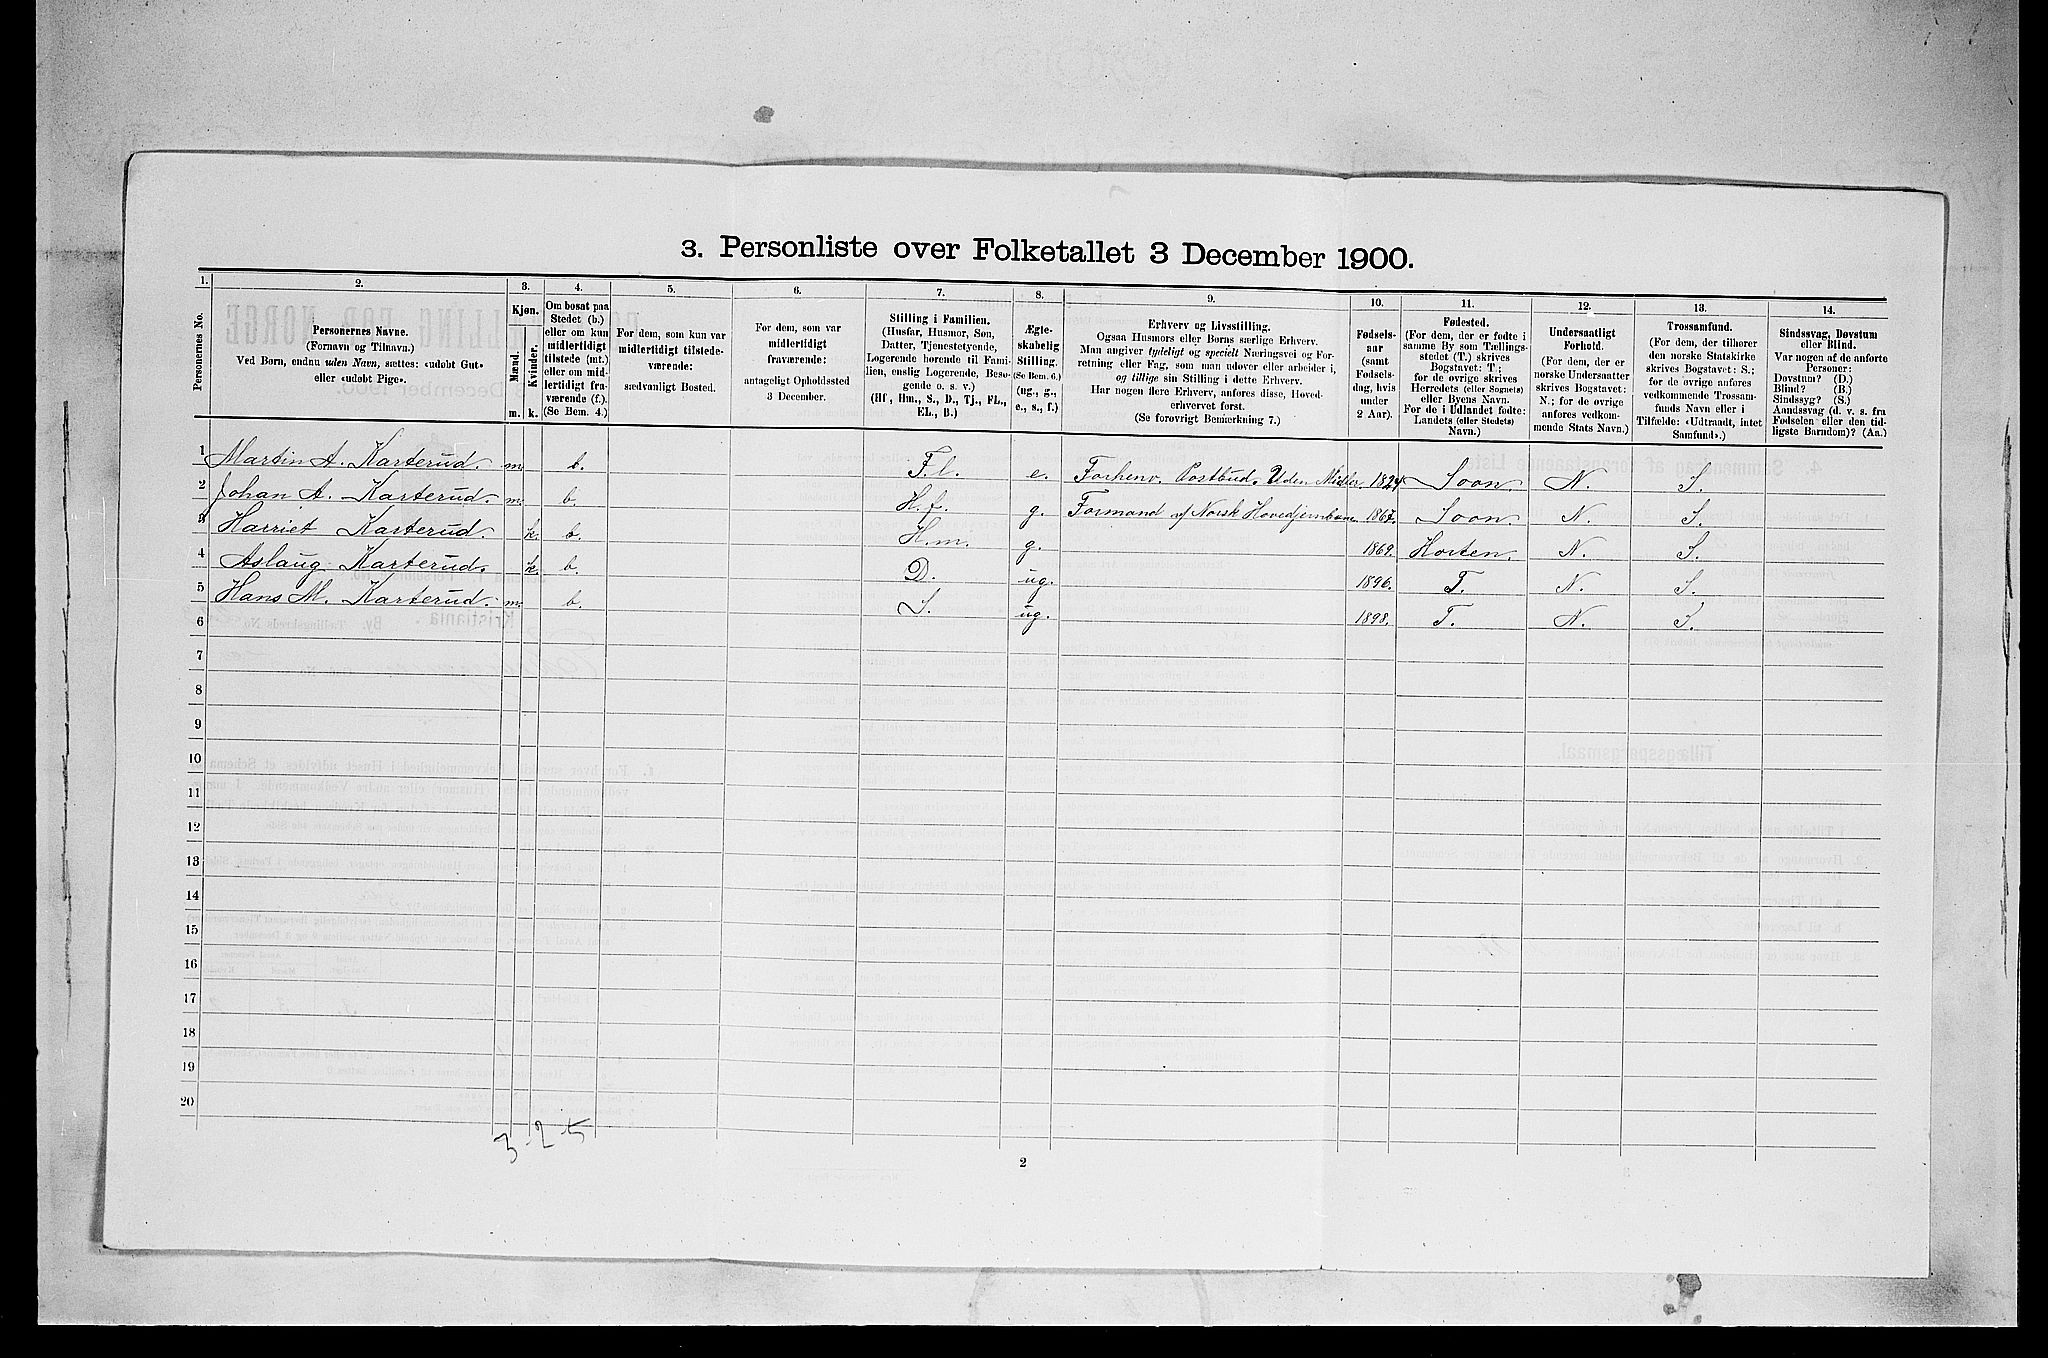 3. Personliste over Folketallet 3 December 1900.
1. 2. 3. 4. 5. 6. 7. 8. 9. 10. 11. 12. 13. 14.
Personernes No.
Personernes Navne.
(Fornavn og Tilnavn.)
Ved Børn, endnu uden Navn, sættes: «udøbt Gut»
eller «udøbt Pige».
Kjøn.
Mænd. Kvinder.
m. k.
Om bosat paa
Stedet (b.)
eller om kun
midlertidigt
tilstede (mt.)
eller om mid-
lertidigt fra-
værende (f.).
(Se Bem. 4.)
For dem, som kun var
midlertidigt tilstede-
værende:
sædvanligt Bosted.
For dem, som var
midlertidigt
fraværende:
antageligt Opholdssted
3 December.
Stilling i Familien.
(Husfar, Husmor, Søn,
Datter, Tjenestetyende,
Logerende hørende til Fami-
lien, enslig Logerende, Besø-
gende o. s. v.)
(Hf., Hm., S., D., Tj., FL.,
EL., B.)
Ægte-
skabelig
Stilling.
(Se Bem. 6.)
(ug., g.,
e., s., f.)
Erhverv og Livsstilling.
Ogsaa Husmors eller Børns særlige Erhverv.
Man angiver tydeligt og specielt Næringsvei og For-
retning eller Fag, som man udøver eller arbeider i,
og tillige sin Stilling i dette Erhverv.
Har nogen flere Erhverv, anføres disse, Hoved-
erhvervet først.
(Se forøvrigt Bemerkning 7.)
Fødsels-
aar
(samt
Fødsels-
dag, hvis
under
2 Aar).
Fødested.
(For dem, der er fødte i
samme By som Tællings-
stedet (T.) skrives
Bogstavet: T.;
for de øvrige skrives
Herredets (eller Sognets)
eller Byens Navn.
For de i Udlandet fødte:
Landets (eller Stedets)
Navn.)
Undersaatligt
Forhold.
(For dem, der er
norske Undersaatter
skrives Bogstavet:
N.; for de øvrige
anføres vedkom-
mende Stats Navn.)
Trossamfund.
(For dem, der tilhører
den norske Statskirke
skrives Bogstavet: S.;
for de øvrige anføres
vedkommende Trossam-
funds Navn eller i
Tilfælde: «Udtraadt, intet
Samfund».)
Sindssvag, Døvstum
eller Blind.
Var nogen af de anførte
Personer:
Døvstum? (D.)
Blind? (B.)
Sindssyg? (S.)
Aandssvag (d. v. s. fra
Fødselen eller den tid-
ligste Barndom)? (Aa.)
1 Martin A. Karterud. m. b. F.l. e. Forhenv. Postbud. Uden Midler. 1824 Soon. N. S.
2 Johan A. Karterud. m. b. H.f. g. Formand af Norsk Hovedjernbane 1867. Soon. N. S.
3 Harriet Karterud. k. b. H.m. g. 1869. Horten. N. S.
4 Aslaug Karterud. k. b. D. ug. 1896. T. N. S.
5 Hans M. Karterud. m. b. S. ug. 1898. T. N. S.
6
7
8
9
10
11
12
13
14
15
16
17
18
19
20
3-2-5
2